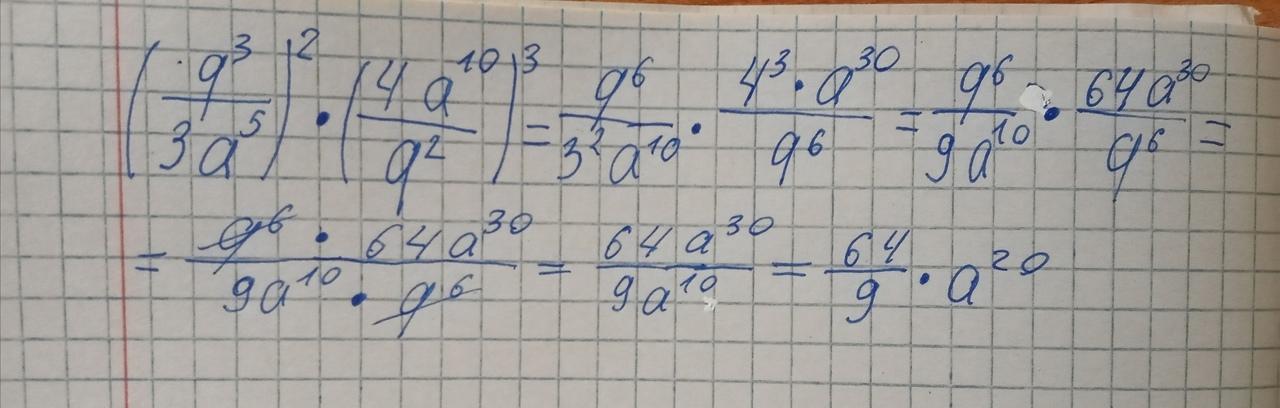 (q³/3a⁵)² · (4a¹⁰/q²)³ = q⁶/3²a¹⁰ · 4³·a³⁰/q⁶ = q⁶/9a¹⁰ · 64a³⁰/q⁶ =
= q⁶ · 64a³⁰/9a¹⁰ · q⁶ = 64a³⁰/9a¹⁰ = 64/9 · a²⁰